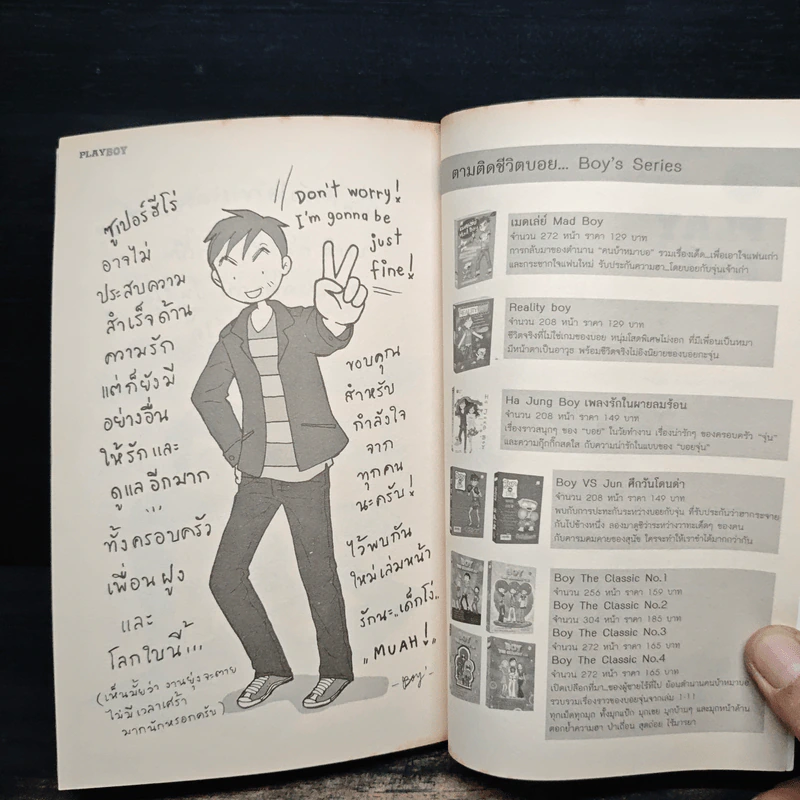 PLAYBOY
ซูเปอร์ฮีโร่
อาจไม่
ประสบความ
สำเร็จด้าน
ความรัก
แต่ก็ยังมี
อย่างอื่น
ให้รักและ
ดูแลอีกมาก
...
ทั้งครอบครัว
เพื่อนฝูง
และ
โลกใบนี้...
(เห็นมั้ยว่า งานยุ่งจะตาย
ไม่มีเวลาเศร้า
มากนักหรอกครับ)
Don't worry!
I'm gonna be
just
fine!
ขอบคุณ
สำหรับ
กำลังใจ
จาก
ทุกคน
นะครับ!
ไว้พบกัน
ใหม่เล่มหน้า
รักนะ..เด็กโง่..
"MUAH!"
Boy
ตามติดชีวิตบอย... Boy's Series
เมดเล่ย์ Mad Boy
จำนวน 272 หน้า ราคา 129 บาท
การกลับมาของตำนาน "คนบ้าหมาบอ" รวมเรื่องเด็ด...เพื่อเอาใจแฟนเก่า
และกระชากใจแฟนใหม่ รับประกันความฮา...โดยบอยกับจุ่นเจ้าเก่า
Reality boy
จำนวน 208 หน้า ราคา 129 บาท
ชีวิตจริงที่ไม่ใช่เกมของบอย หนุ่มโสดพิเศษไม่งอก ที่มีเพื่อนเป็นหมา
มีหน้าตาเป็นอาวุธ พร้อมชีวิตจริงไม่อิงนิยายของบอยกะจุ่น
Ha Jung Boy เพลงรักในผายลมร้อน
จำนวน 208 หน้า ราคา 149 บาท
เรื่องราวสนุกๆ ของ "บอย" ในวัยทำงาน เรื่องน่ารักๆ ของครอบครัว "จุ่น"
และความกุ๊กกิ๊กสดใส กับความน่ารักในแบบของ "บอยจุ่น"
Boy VS Jun ศึกวันโดนด่า
จำนวน 208 หน้า ราคา 149 บาท
พบกับการปะทะกันระหว่างบอยกับจุ่น ที่รับประกันว่าฮากระจาย
กันไปข้างหนึ่ง ลองมาดูซิว่าระหว่างวาทะเด็ดๆ ของคน
กับคารมคมคายของสุนัข ใครจะทำให้เราขำได้มากกว่ากัน
Boy The Classic No.1
จำนวน 256 หน้า ราคา 159 บาท
Boy The Classic No.2
จำนวน 304 หน้า ราคา 185 บาท
Boy The Classic No.3
จำนวน 272 หน้า ราคา 165 บาท
Boy The Classic No.4
จำนวน 272 หน้า ราคา 165 บาท
เปิดเปลือกที่มา...ของผู้ชายใช้ที่ไป ย้อนตำนานคนบ้าหมาบอ
รวบรวมเรื่องราวของบอยจุ่นจากเล่ม 1-11
ทุกเม็ดทุกมุก ทั้งมุกแป้ก มุกเชย มุกบ้านๆ และมุกหน้าด้าน
ตอกย้ำความฮา ป่าเถื่อน สุดถ่อย ไร้มารยา